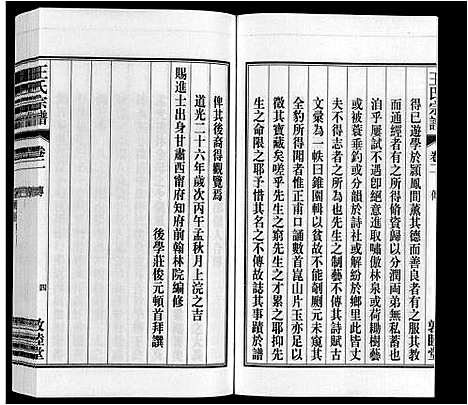 王氏宗譜 卷二 傳
得已遊學於潁鳳間薰其德而善良者有之服其教
而通經者有之所得脩資歸以分潤兩弟無私蓄也
泊乎屢試不遇卽絕意進取嘯傲林泉或荷鋤樹藝
或被蓑垂釣或分韻於詩社或解紛於鄉里此丈
夫不得志者之所為也先生之制藝不傳其詩賦古
文彙為一帙曰錐園輯以貧故不能剞劂元未窺其
全豹所得聞者惟正甫口誦數首崑山片玉亦足以
徵其寶藏矣嗟乎先生之窮先生之才累之耶抑先
生之命限之耶予惜其名之不傳故誌其事蹟於譜
敦睦堂
俾其後裔得觀覽焉
道光二十六年歲次丙午孟秋月上浣之吉
賜進士出身甘肅西甯府知府前翰林院編修
後學莊俊元頓首拜譔
王氏宗譜 卷二 傳 四 敦睦堂